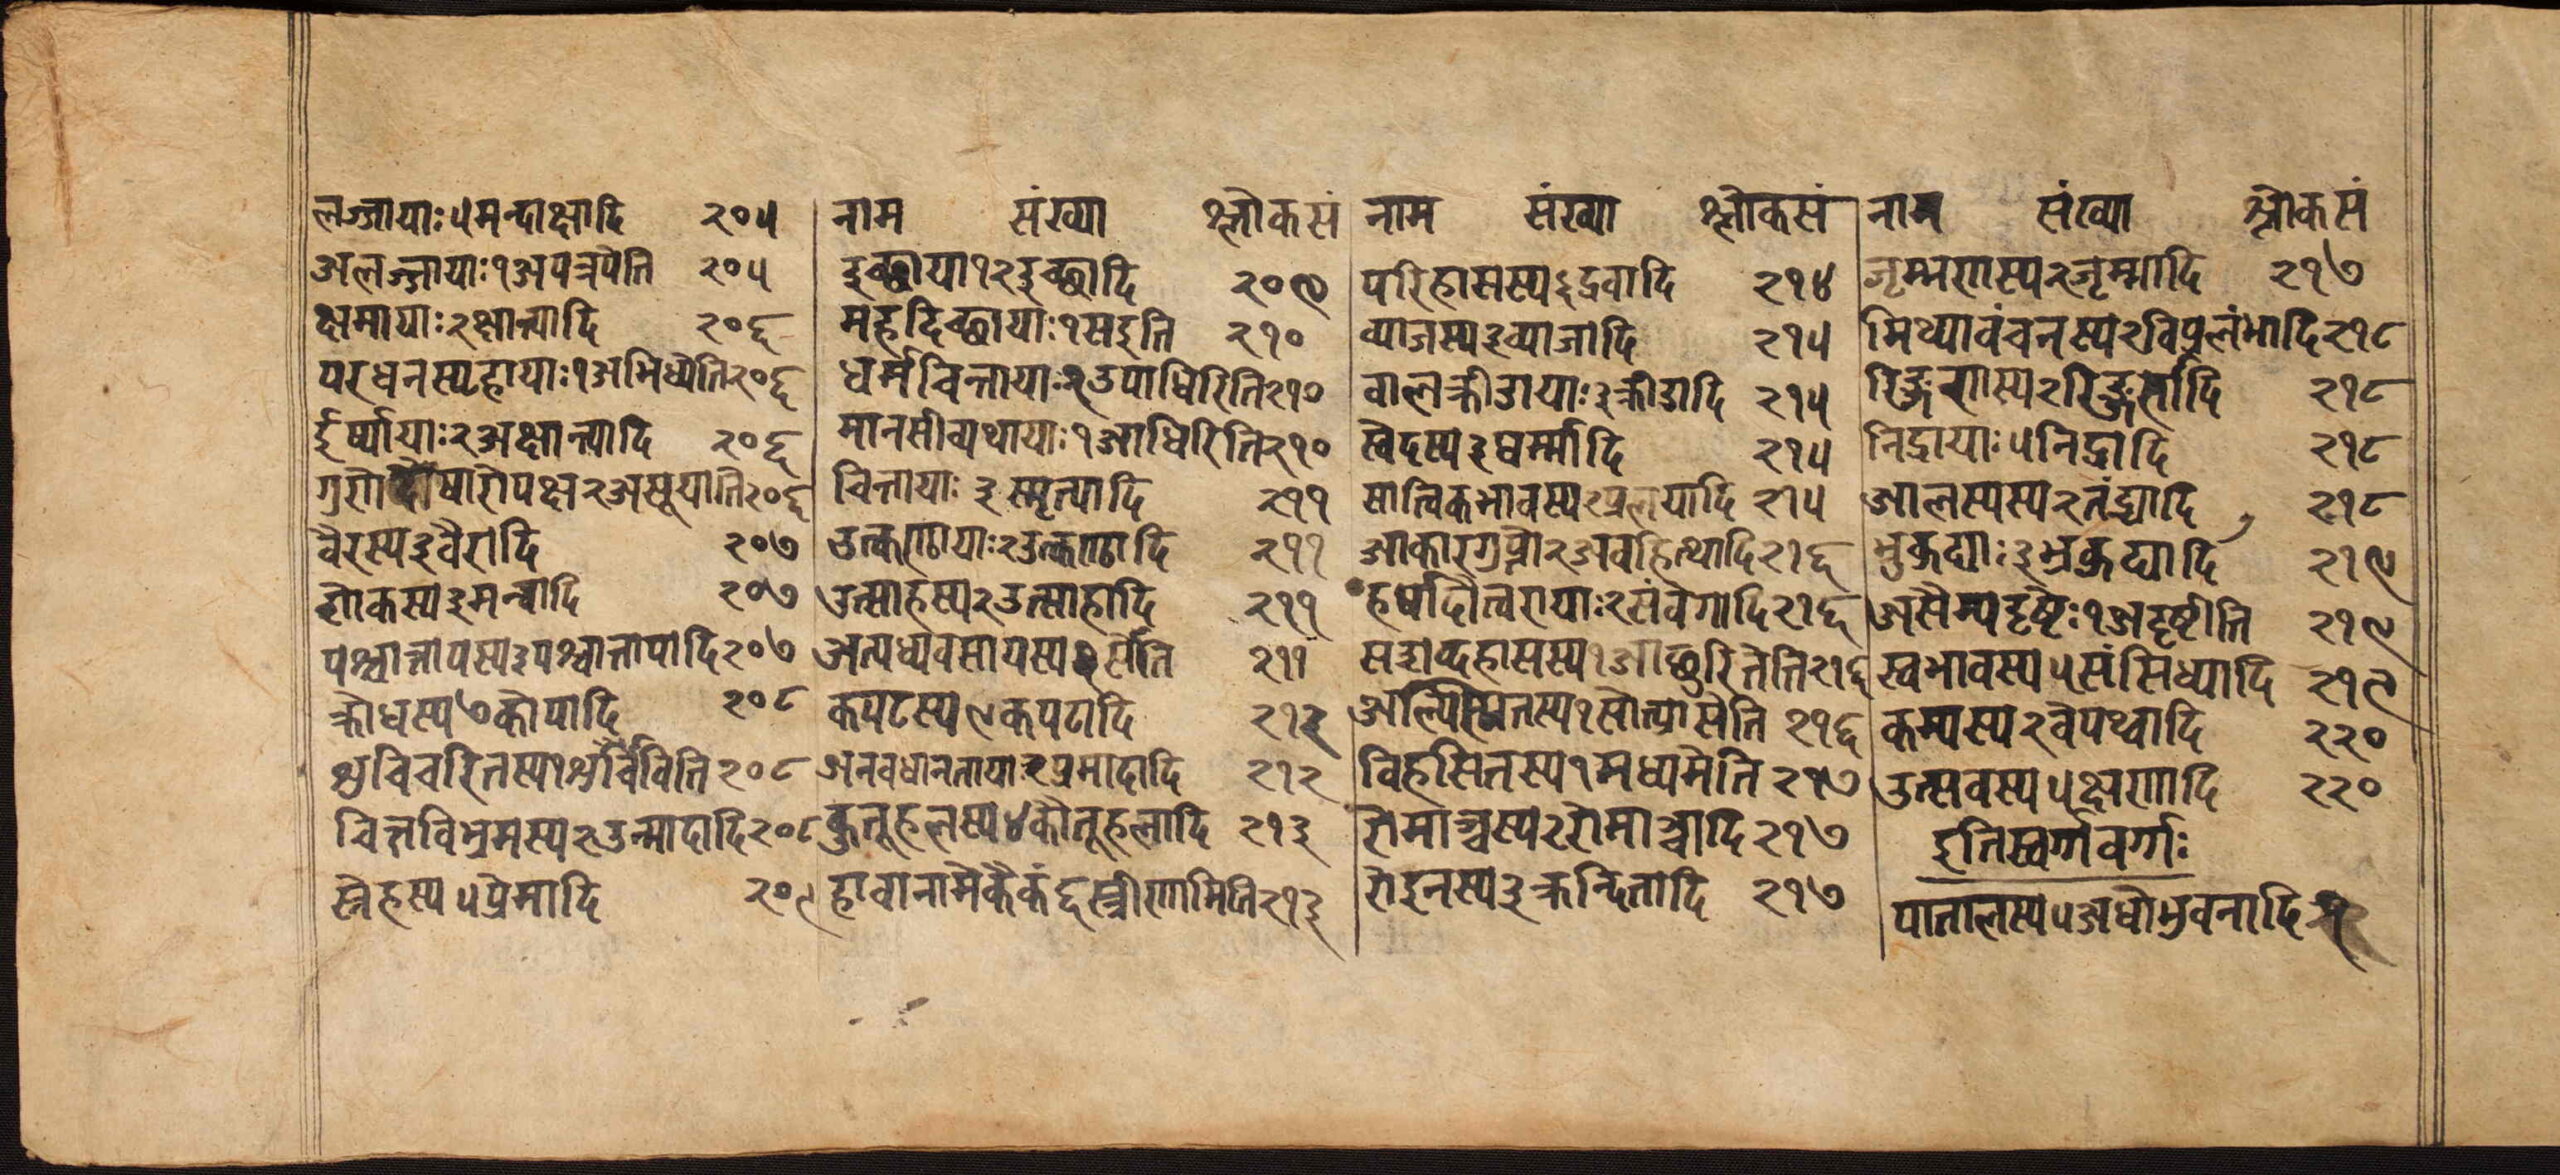 लज्जायाः ५ मन्दाक्षादि २०५
अलज्जायाः १ अपत्रपेति २०५
क्षमायाः २ क्षान्त्यादि २०६
परधनस्पृहायाः १ अभिध्येति २०६
ईर्ष्यायाः २ अक्षान्त्यादि २०६
गुणे दोषारोपस्य २ असूयाति २०६
वैरस्य ३ वैरादि २०७
शोकस्य ३ मन्य्वादि २०७
पश्चात्तापस्य ३ पश्चात्तापादि २०७
क्रोधस्य ७ कोपादि २०८
शुचिचरितस्य १ शुचाविति २०८
चित्तविभ्रमस्य २ उन्मादादि २०८
स्नेहस्य ५ प्रेमादि २०९
नाम संख्या श्लोकसं
इच्छाया १२ इच्छादि २०९
महदिच्छायाः १ सइति २१०
धर्मचिन्तायाः २ उपाधिरिति २१०
मानसीव्यथायाः १ आधिरिति २१०
चिन्तायाः ३ स्मृत्यादि २११
उत्कण्ठायाः २ उत्कण्ठादि २११
उत्साहस्य २ उत्साहादि २११
अत्यध्यवसायस्य सेति २११
कपटस्य ९ कपटादि २१२
अनवधानताया २ प्रमादादि २१२
कुतूहलस्य ४ कौतूहलादि २१३
हावानामेकैकं ६ स्त्रीणामिति २१३
नाम संख्या श्लोकसं
परिहासस्य ६ द्रवादि २१४
व्याजस्य ३ व्याजादि २१५
बालक्रीडायाः ३ क्रीडादि २१५
स्वेदस्य ३ घर्म्मादि २१५
सात्विकभावस्य २ प्रलयादि २१५
आकारगुप्तेः २ अवहित्थादि २१६
हर्षादौ त्वरायाः २ संवेगादि २१६
सशब्दहासस्य १ आच्छुरितेति २१६
अल्पस्मितस्य १ सोत्प्रासेति २१६
विहसितस्य १ मध्यमेति २१७
रोमाञ्चस्य २ रोमाञ्चादि २१७
रोदनस्य ३ क्रन्दितादि २१७
नाम संख्या श्लोकसं
जृम्भणस्य २ जृम्भादि २१७
मिथ्यावंचनस्य २ विप्रलंभादि २१८
रिङ्गणस्य २ रिङ्गणादि २१८
निद्रायाः ५ निद्रादि २१८
आलस्यस्य २ तंद्र्यादि २१८
भ्रुकुट्याः ३ भ्रकुट्यादि २१९
असौम्यदृष्टेः १ अदृष्टीति २१९
स्वभावस्य ५ संसिध्यादि २१९
कम्पस्य २ वेपथ्वादि २२०
उत्सवस्य ५ क्षणादि २२०
इति स्वर्ग्गवर्गः
पातालस्य ५ अधोभुवनादि